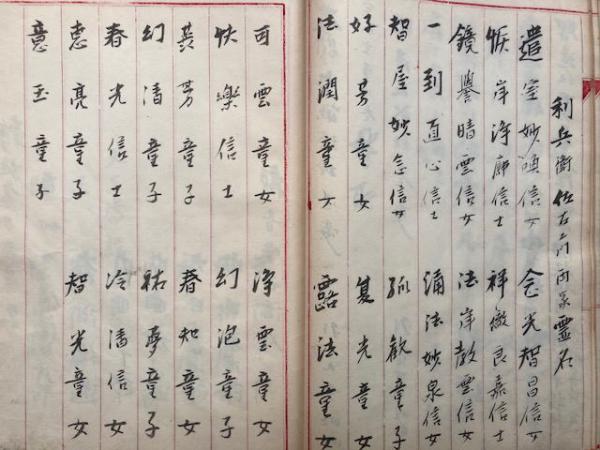 利兵衛佐左衛門両家霊名
遣室妙頌信女 念光智昌信女
帳岸浄廓信士 祥徹良嘉信士
鏡誉晴雲信女 法岸教雲信女
一到直心信士 涌法妙泉信女
智屋妙念信女 孤歓童子
好芳童女 复光童女
法潤童女 露法童女
可雲童女 浄雲童女
快樂信士 幻泡童子
芸芳童子 春知童女
幻清童子 祐夢童子
春光信士 冷清信女
恵亮童子 智光童女
意玉童子